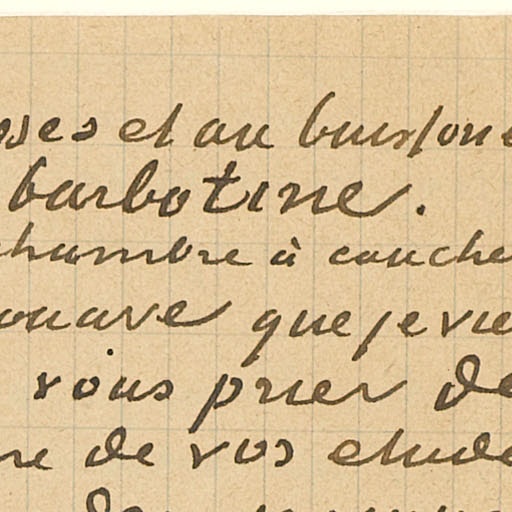 sses et au buisson
barbotine.
chambre à couche
ouave que je vie
vous prier de
re de vos etude